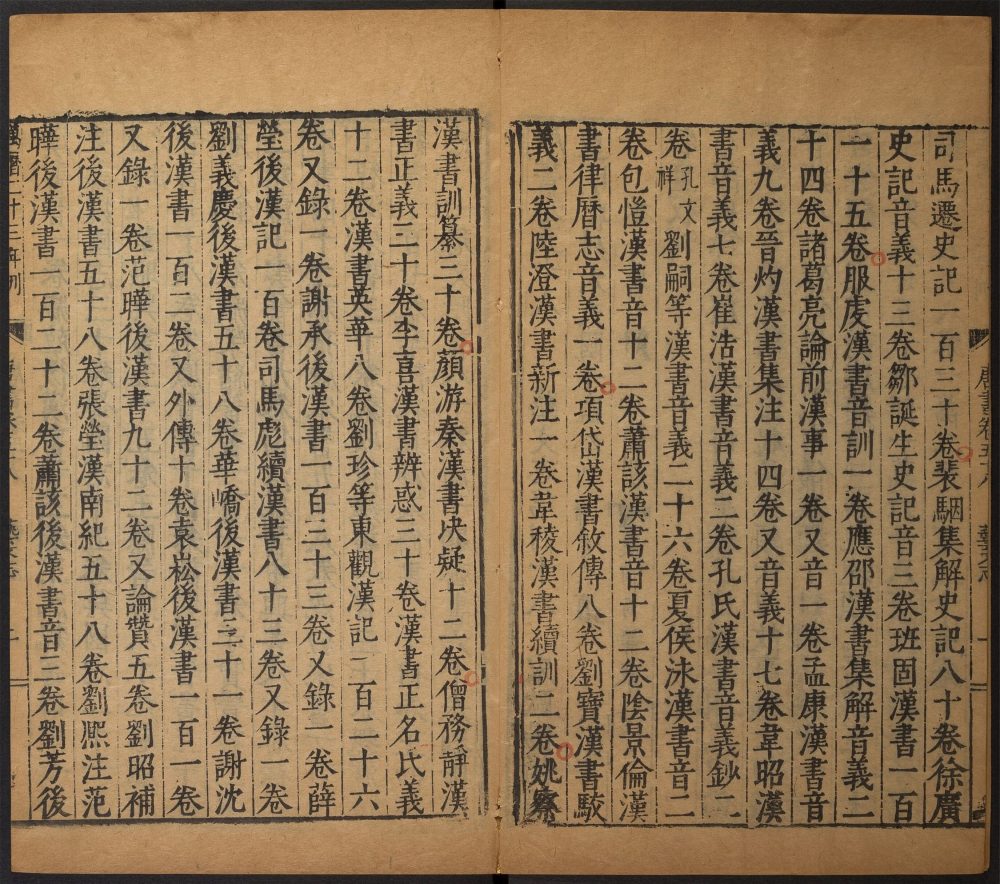 司馬遷史記一百三十卷裴駰集解史記八十卷徐廣
史記音義十三卷鄒誕生史記音三卷班固漢書一百
一十五卷服虔漢書音訓一卷應邵漢書集解音義二
十四卷諸葛亮論前漢事一卷又音一卷孟康漢書音
義九卷晉灼漢書集注十四卷又音義十七卷韋昭漢
書音義七卷崔浩漢書音義二卷孔氏漢書音義鈔二
卷孔文祥劉嗣等漢書音義二十六卷夏侯泳漢書音二
卷包愷漢書音十二卷蕭該漢書音十二卷陰景倫漢
書律曆志音義一卷項岱漢書敘傳八卷劉寶漢書駮
義二卷陸澄漢書新注一卷韋稜漢書續訓二卷姚察
漢書訓纂三十卷顏游秦漢書决疑十二卷僧務靜漢
書正義三十卷李喜漢書辨惑三十卷漢書正名氏義
十二卷漢書英華八卷劉珍等東觀漢記一百二十六
卷又錄一卷謝承後漢書一百三十三卷又錄一卷薛
瑩後漢記一百卷司馬彪續漢書八十三卷又錄一卷
劉義慶後漢書五十八卷華嶠後漢書三十一卷謝沈
後漢書一百二卷又外傳十卷袁崧後漢書一百一卷
又錄一卷范曄後漢書九十二卷又論贊五卷劉昭補
注後漢書五十八卷張瑩漢南紀五十八卷劉熈注范
曄後漢書一百二十二卷蕭該後漢書音三卷劉芳後